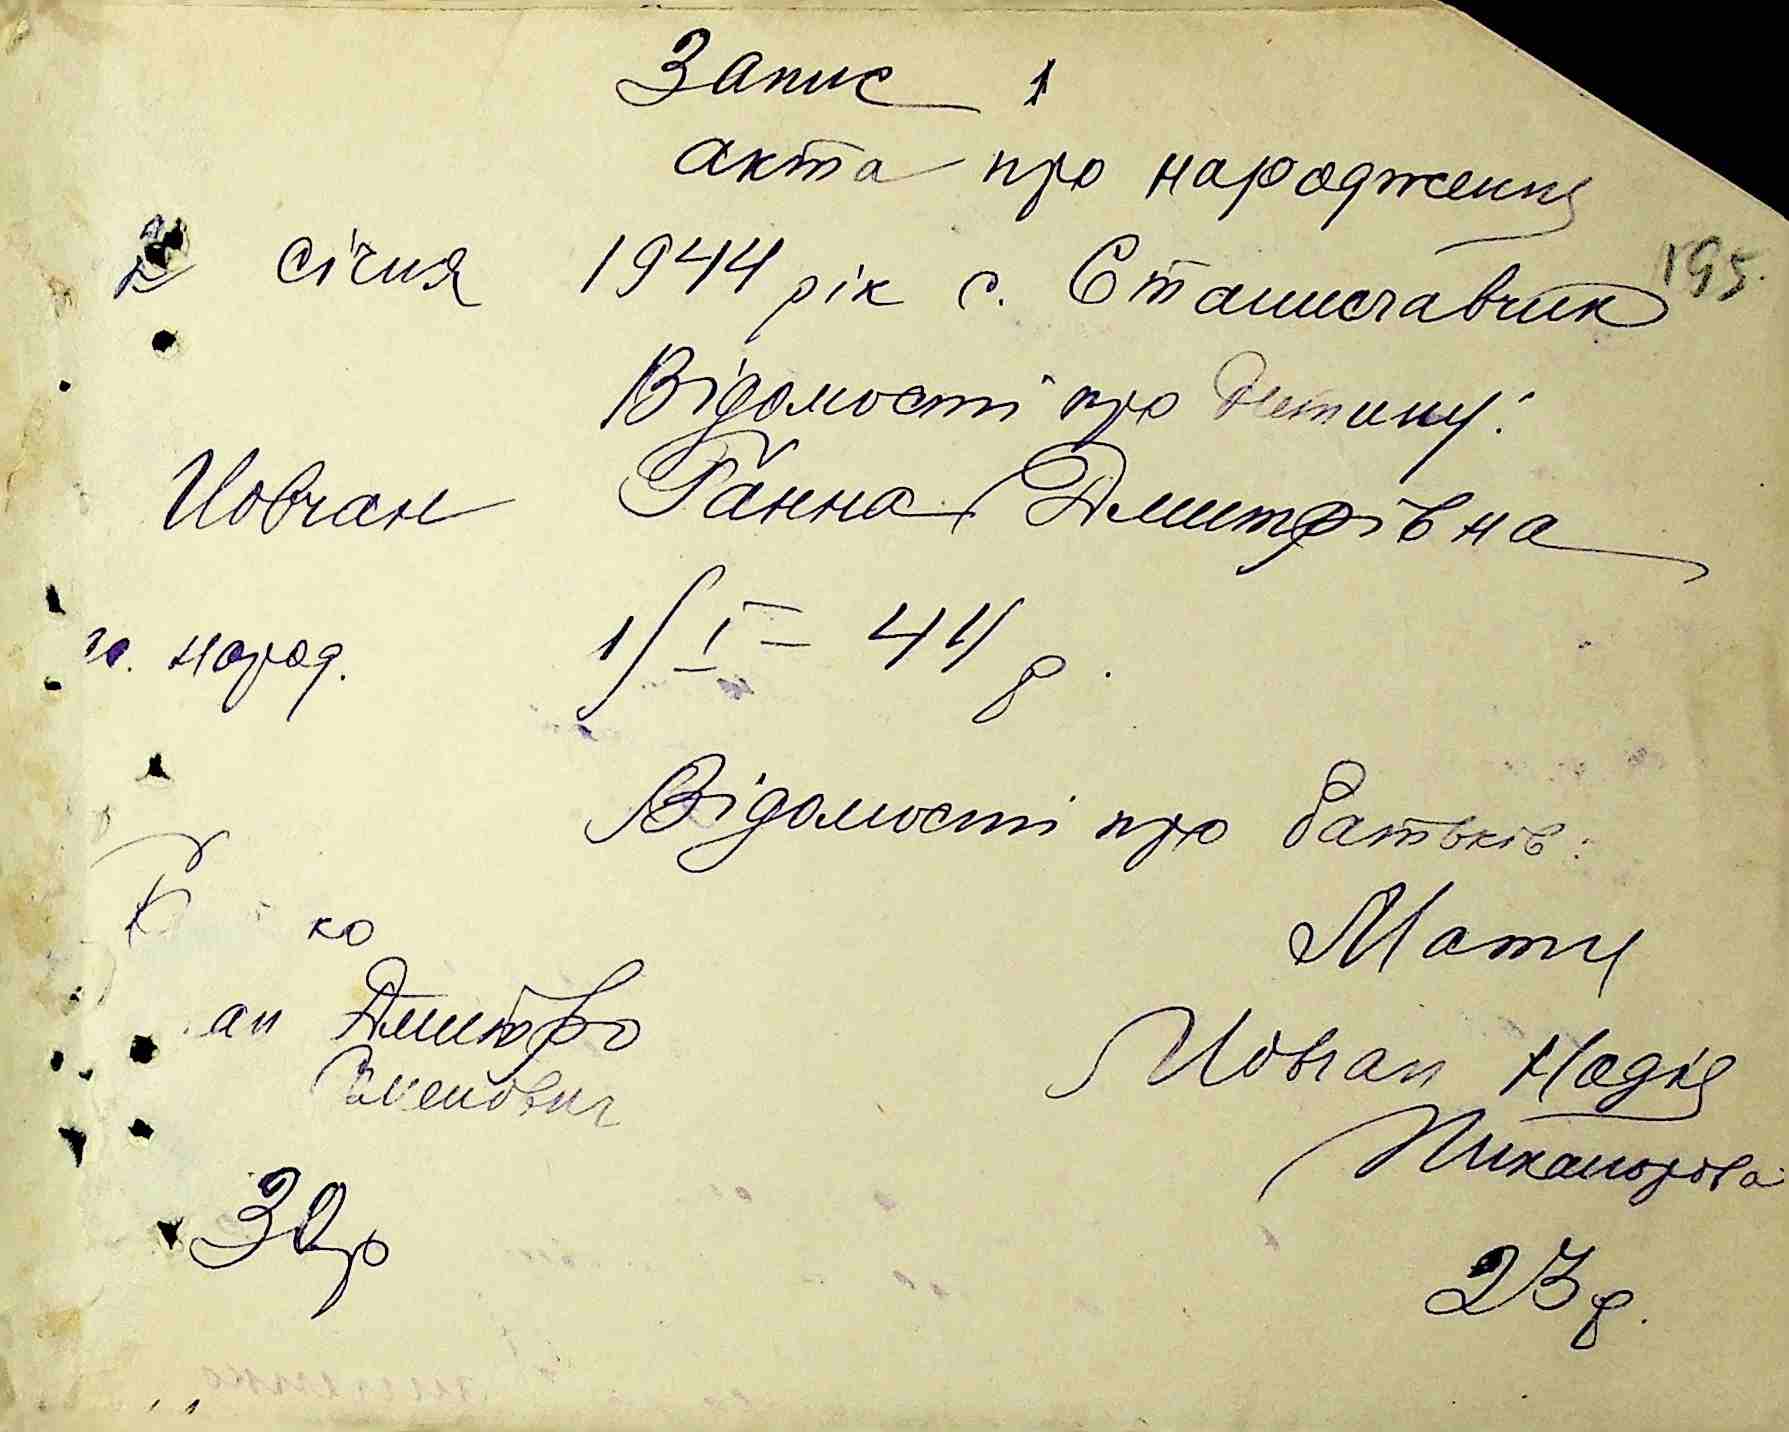 Запис 1
акта про народження
2 січня 1944 рік с. Станиславчик 195.
Відомості про детину:
Човган Ганна Дмитрівна
народ. 1/I – 44 р.
Відомості про батьків:
ко Мати
ан Дмитро Човган Надія
Никанорова
30р 23 р.